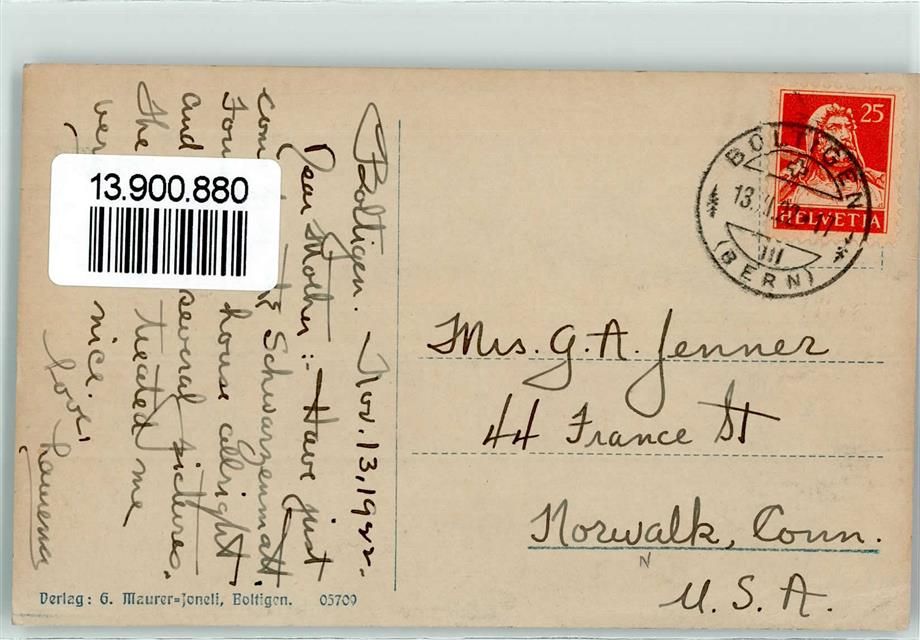 Boltigen. Nov. 13, 1922.
Dear Mother :- Have just
com Schwarzenmatt.
Fou house allright
and several pictures.
The treated me
ver nice.
Love,
13.900.880
25
HELVETIA
BOLTIGEN
13.XI.22-17
III
(BERN)
Mrs. G. A. Jenner
44 France St
Norwalk, Conn.
N
U. S. A.
Verlag: G. Maurer=Joneli, Boltigen. 05709